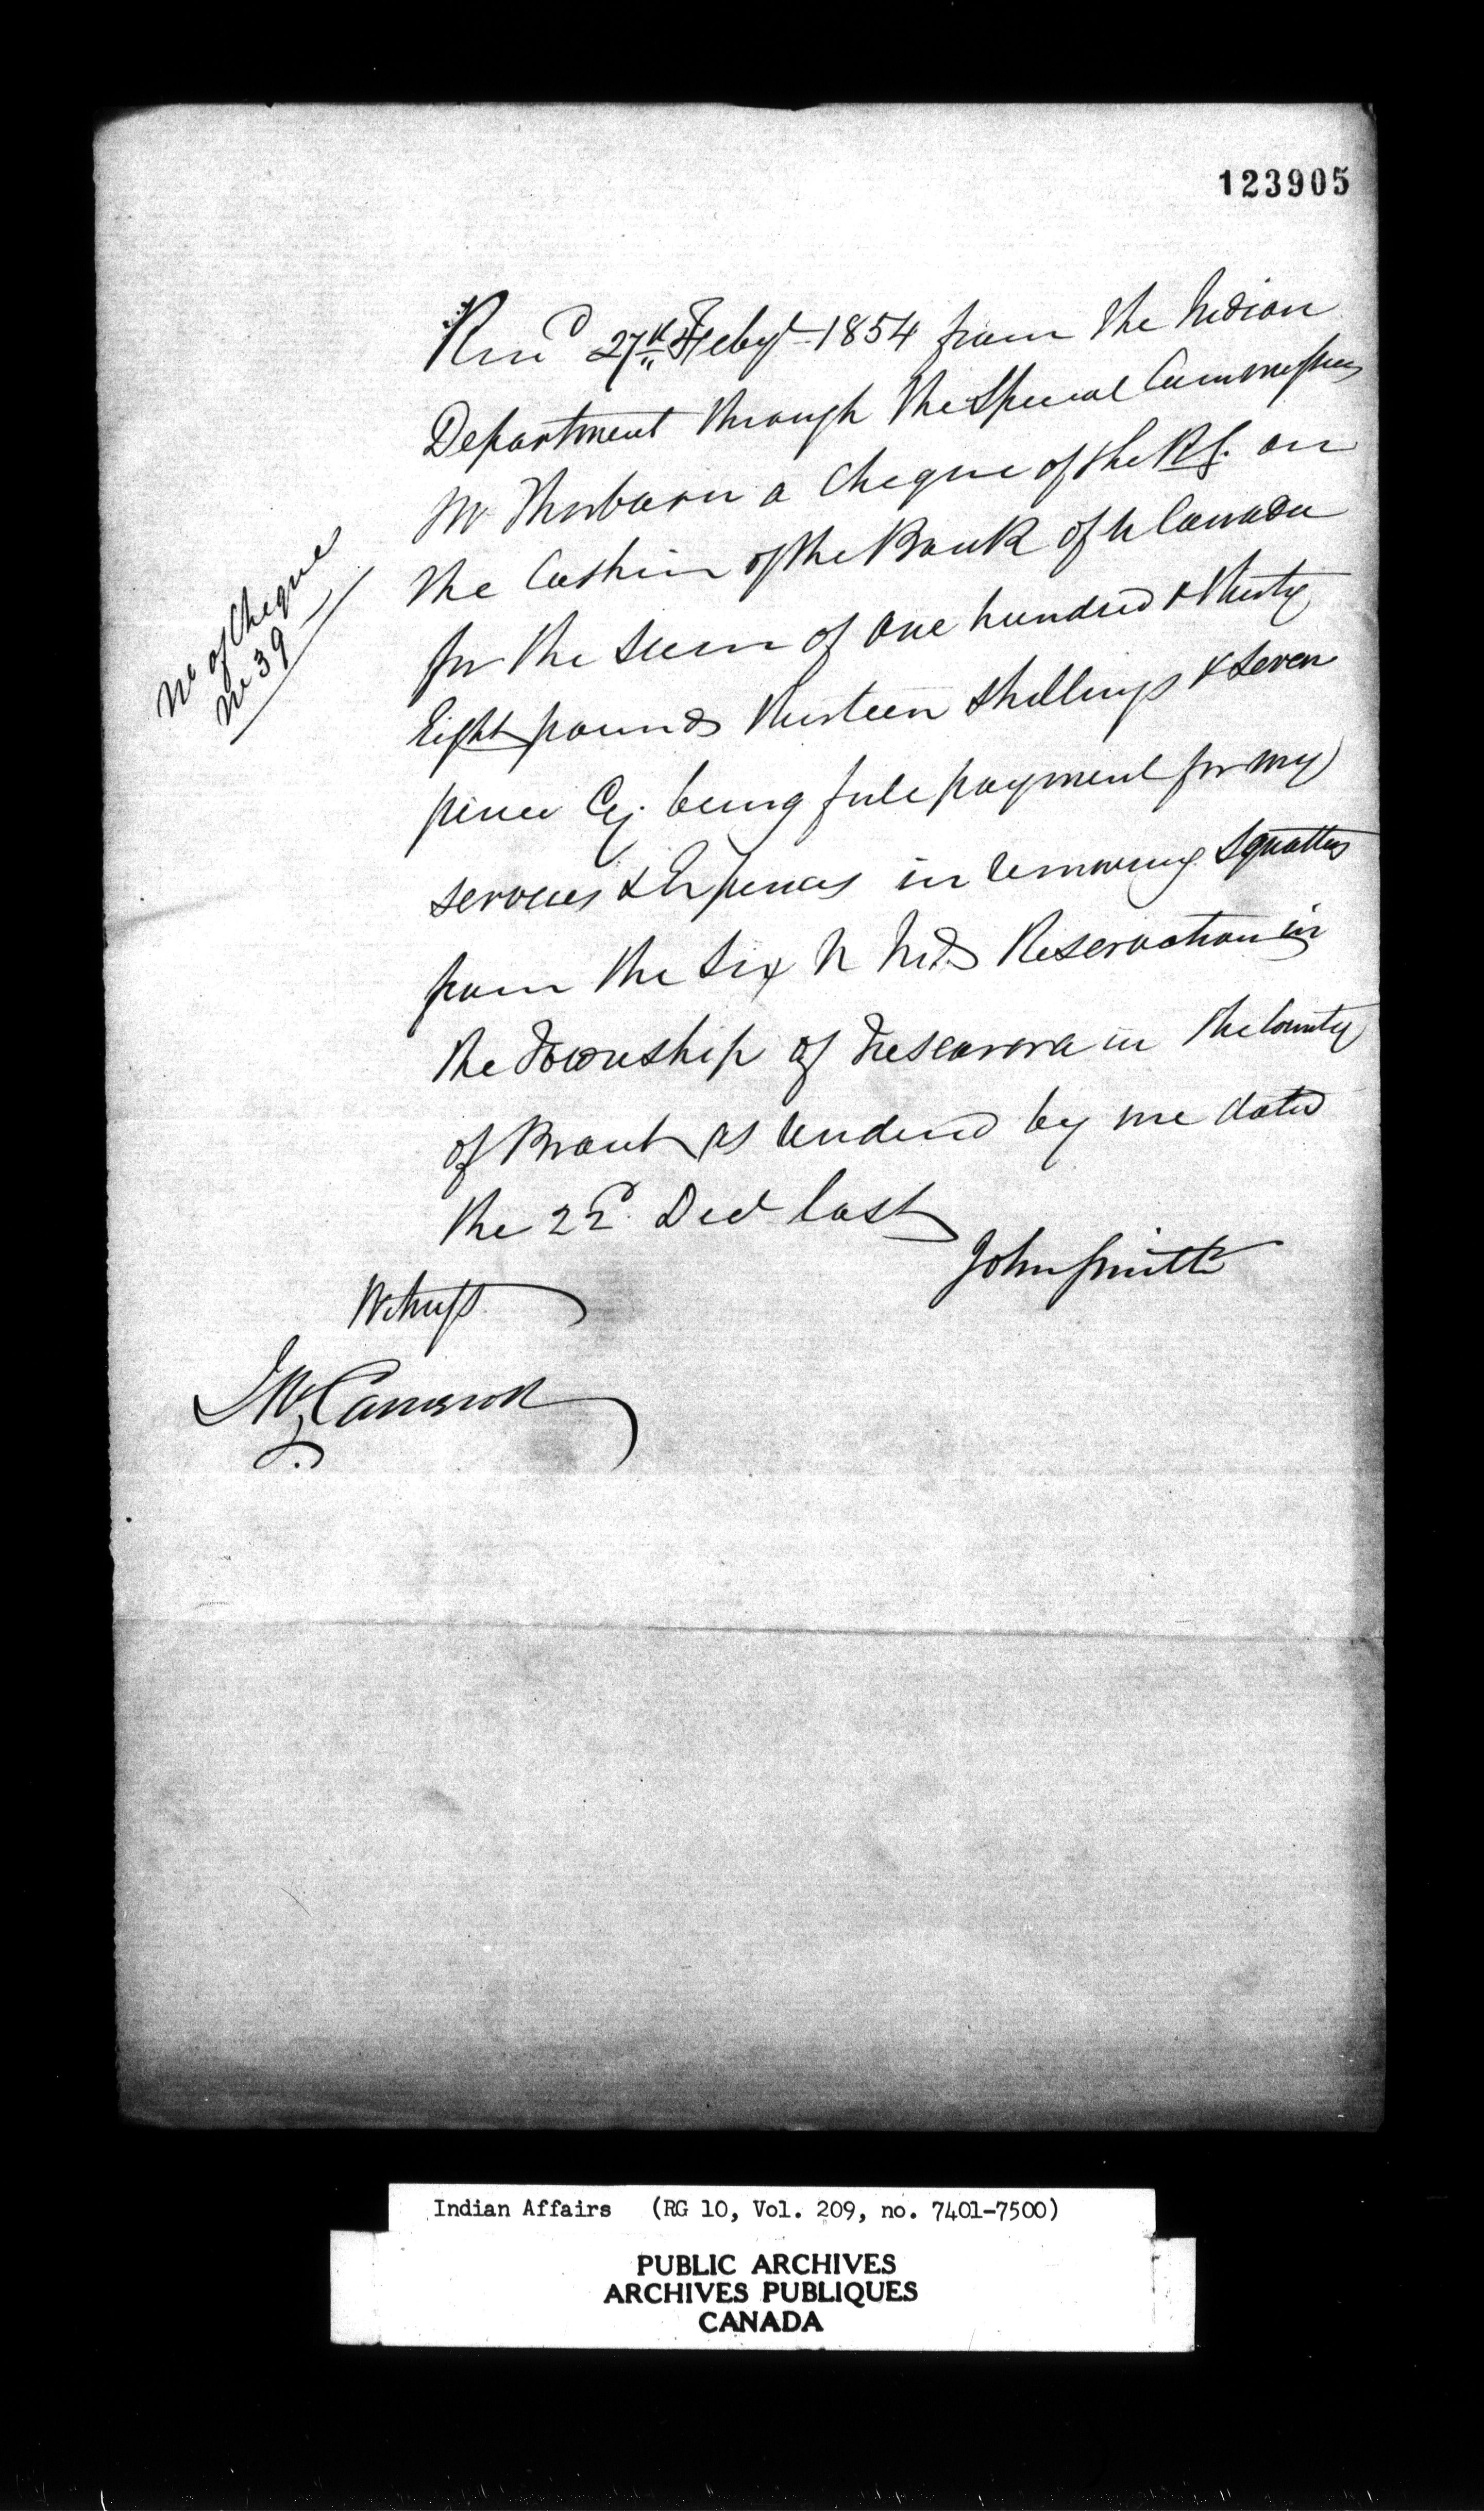 123905
Recd 27th Feby 1854 from the Indian
Department through the Special Commissioner
Mr Thorburn a Cheque of the R.G. on
the Cashier of the Bank of U Canada
for the sum of One hundred & thirty
Eight pounds thirteen shillings & seven
pence Cy. being full payment for my
services & Expences in removing Squatters
from the Six N Inds Reservation in
the Township of Tuscarora in the County
of Brant as rendered by me dated
the 22d Decr last
John Smith
Witness
J W Cameron
No of Cheque
No 39
Indian Affairs (RG 10, Vol. 209, no. 7401-7500)
PUBLIC ARCHIVES
ARCHIVES PUBLIQUES
CANADA